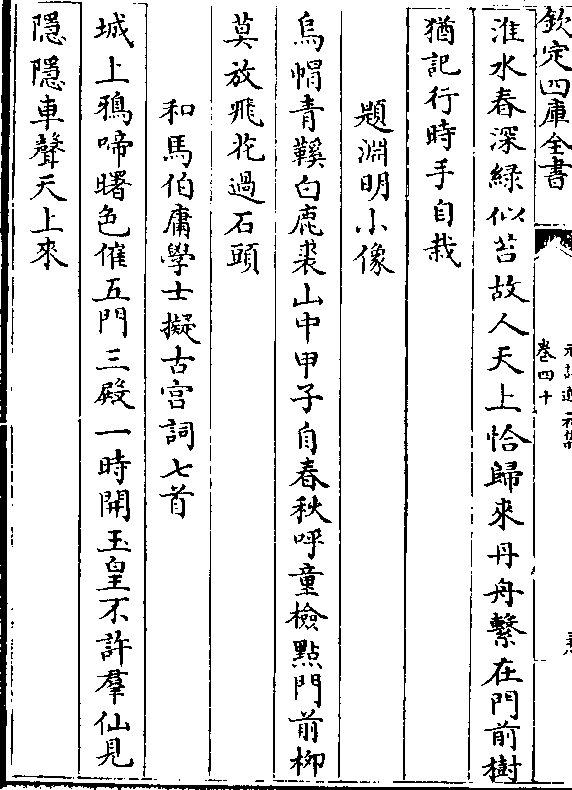 欽定四庫全書
卷四十
淮水春深綠似苔故人天上恰歸來丹舟繫在門前樹
猶記行時手自栽
題淵明小像
烏帽青鞵白鹿裘山中甲子自春秋呼童檢點門前栁
莫放飛花過石頭
和馬伯庸學士擬古宫詞七首
城上鴉啼曙色催五門三殿一時開玉皇不許羣仙見
隱隱車聲天上來